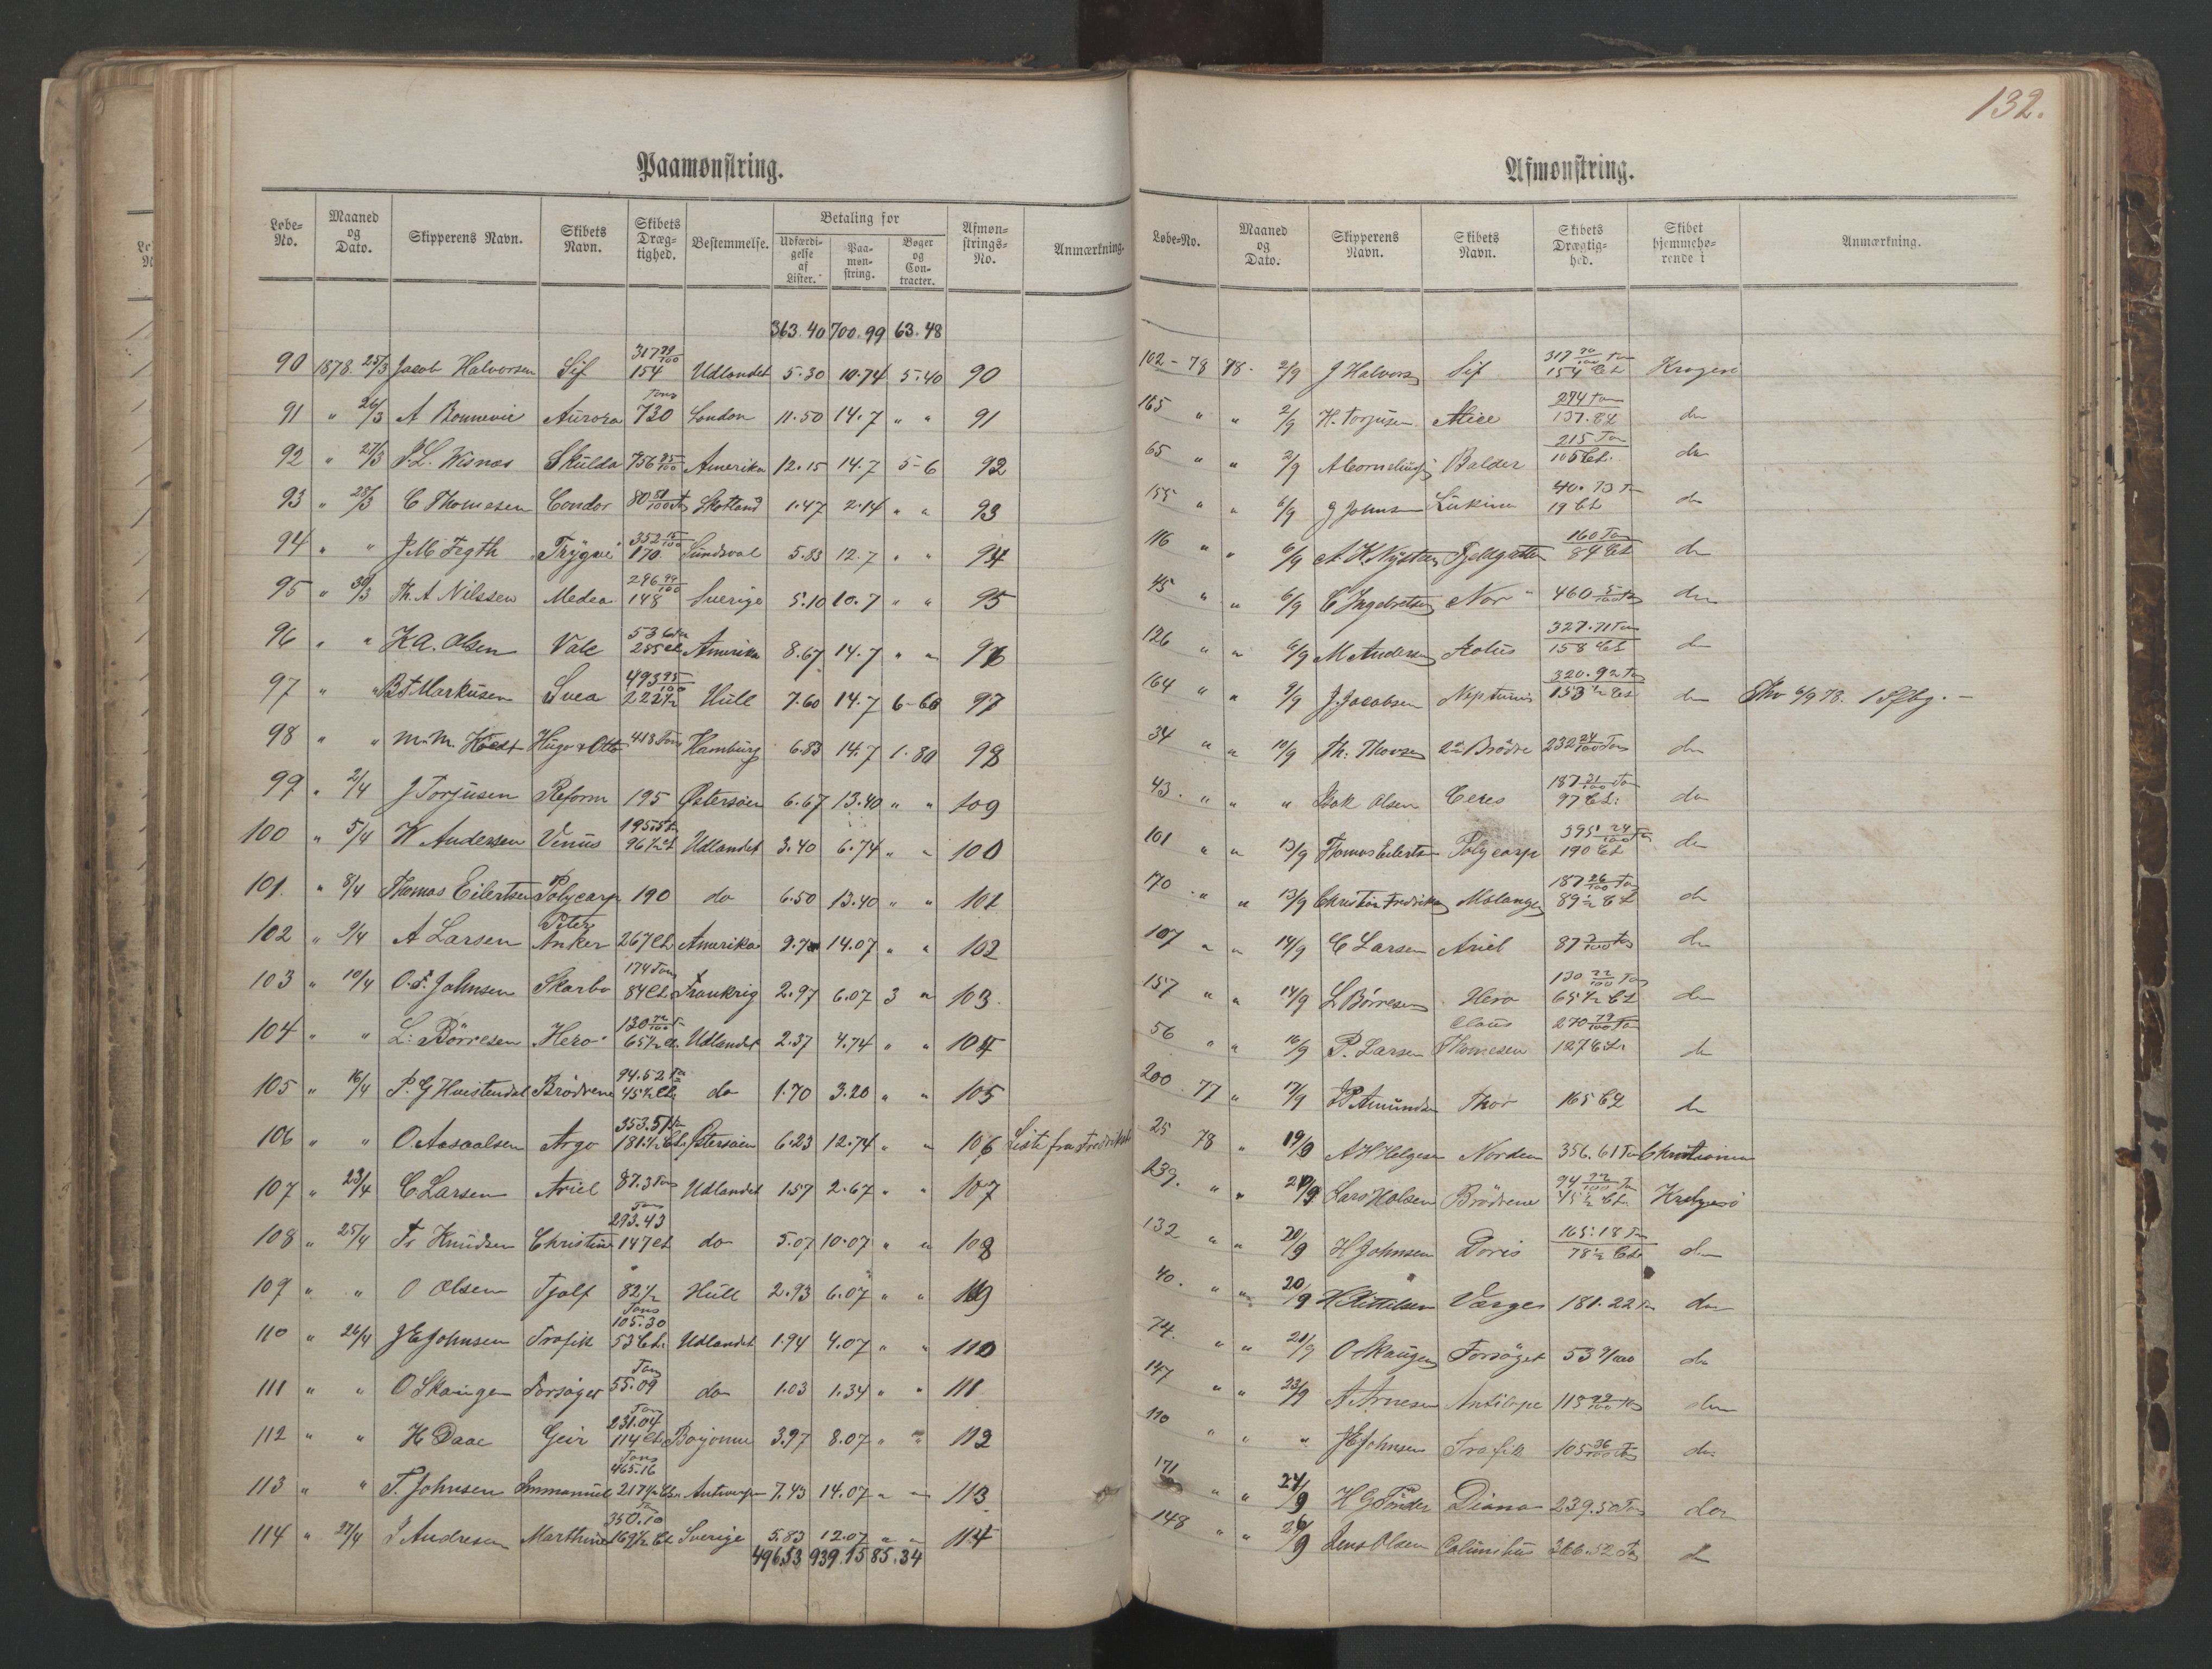 132.
Paamønstring.
Løbe-No. Maaned og Dato. Skipperens Navn. Skibets Navn. Skibets Dræg-tighed. Bestemmelse. Betaling for Udfærdi-gelse af Lister. Paa-møn-string. Bøger og Con-tracter. Afmøn-strings-No. Anmærkning.
363.40 700.99 63.48
90 1878. 25/3 Jacob Halvorsen Sif 317 90/100 154 Udlandet 5.30 10.74 5.40 90
91 " 26/3 A Bonnevie Aurora Tons 730 London 11.50 14.7 " " 91
92 " 27/3 Wisnæs Skulda 756 85/100 Amerika 12.15 14.7 5-6 92
93 " 28/3 C Thomesen Condor 80 Skotland 1.47 2.14 " " 93
94 " " J M Fegth "Trygve" 352 170 Sundsval 5.83 12.7 " " 94
95 " 30/3 Th. A Nilssen Medea 296 99/100 148 Sverige 5.10 10.7 " " 95
96 " " K A. Olsen Vale 536 285 Ct Amerika 8.67 14.7 " " 96
97 " " Markusen Svea 493 95/100 222 1/2 Hull 7.60 14.7 6-60 97
98 " " M. M. Hugo & Otto 418 Tons Hamburg 6.83 14.7 1.80 98
99 " 2/4 J Torjusen Reform 195 Østersøen 6.67 13.40 " " 109
100 " 5/4 W Andersen Venus 96 1/2 Ct Udlandet 3.40 6.74 " " 100
101. " 8/4 Thomas Eilertsen Polycarp 190 do 6.50 13.40 " " 101
102 " 9/4 A Larsen Peter Anker 267 Ct Amerika 14.07 " " 102
103 " 10/4 Johnsen Skarbo 174 Tons 84 Ct Frankrig 2.97 6.07 3 " 103.
104 " " L. Børresen "Hero" 130 72/100 65 1/2 Ct Udlandet 2.37 4.74 " " 104
105 " 16/4 P. G Huestendal Brødrene 94.52 45 1/2 Ct do 1.70 3.20 " " 105
106 " " O Aasoalsen Argo 353.51 181 1/2 Ct Østersøen 6.23 12.74 " " 106 Liste fra
107 " 23/4 C Larsen Ariel 87.3 Tons Udlandet 1.57 2.67 " " 107
108 " 25/4 Fr Knudsen Christine Tons 293.43 147 Ct do 5.07 10.07 " " 108
109 " " O Olsen Tjalf 82 1/2 Hull 2.93 6.07 " " 109
110 " 26/4 J E Johnsen Trafik Tons 105.30 53 Ct. Udlandet 1.94 4.07 " " 110
111 " " O Skougen Forsøget Tons 55.09 do 1.03 1.34 " " 111
112 " " H Daae Geir Tons 231.04 114 Ct Bayonne 3.97 8.07 " " 112
113 " " T. Johnsen Immanuel Tons 465.16 217 1/2 Ct Antwerpen 7.43 14.07 " " 113
114 " 27/4 J Andresen Marthine 350.10 169 1/2 Ct Sverige 5.83 12.07 " " 114
496.53 939.15 85.34
Afmønstring.
Løbe-No. Maaned og Dato. Skipperens Navn. Skibets Navn. Skibets Drægtig-hed. Skibet hjemmehø-rende i Anmærkning.
102 - 78 78. 2/9 J Halvors Sif 317 90/100 Ton 154 Ct Kragerø
165 " " 2/9 H. Torjusen Alice 294 Ton 137.82 do
65 " " 2/9 A Corneliusj Balder 215 Ton 105 Ct. do
155 " " 6/9 J Johnsen 40.73 Ton 19 Ct do
116 " " 6/9 Fjeldgutten 160 Ton 84 Ct do
45 " " 6/9 C Ingebretsen Nor 460 do
126 " " 6/9 M Andersen Æolus 327.71 Ton 158 Ct do
164 " " 9/9 J. Jacobsen Neptunus 320.92 Ton 153 1/2 Ct do 6/9 78.
34 " " 10/9 Th. 2de Brødre 232 24/100 Tons do
43. " " " Isak Olsen Ceres 187 31/100 Ton 97 Ct. do
101 " " 13/9 Thomas Eilertsen Polycarp 395 24/100 Ton 190 Ct do
170 " " 13/9 Christian Fredriksen Malangen 187 26/100 Ton 89 1/2 Ct do
107 " " 14/9 C Larsen Ariel 87 3/100 Ton do
157 " " 14/9 L Børresen Hero 130 72/100 Ton 65 1/2 Ct do
56 " " 16/9 P. Larsen Claus Thomesen 270 79/100 Ton 127 Ct. do
200 77 " 17/9 Amundsen Thor 165 Ct do
25 78 " 19/9 A H Helgesen Norden 356.61 Ton Christiania
139. " " 20/9 Lars Holsen Brødrene 94 Ton 45 1/2 Ct Kragerø
132 " " 20/9 H Johnsen Doris 165.18 Ton 78 1/2 Ct do
40. " " 20/9 H Kittilsen Varges 181.22 Ton do
74. " " 21/9 O Skougen Forsøget 53 9/100 do
147 " " 23/9 A Arnesen Antilope 113 92/100 Tons do
110 " " " J E Johnsen Trafik 105 36/100 Ton do
171 " " 24/9 H G Tønder Diana 239.50 Ton do
148 " " 26/9 Jens Olsen Columbus 366.52 Ton do